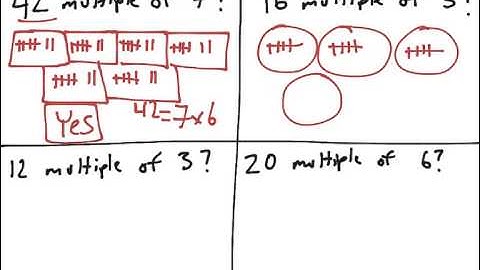 42 multiple of 7?
16 multiple of 5?
Yes
42=7x6
12 multiple of 3?
20 multiple of 6?